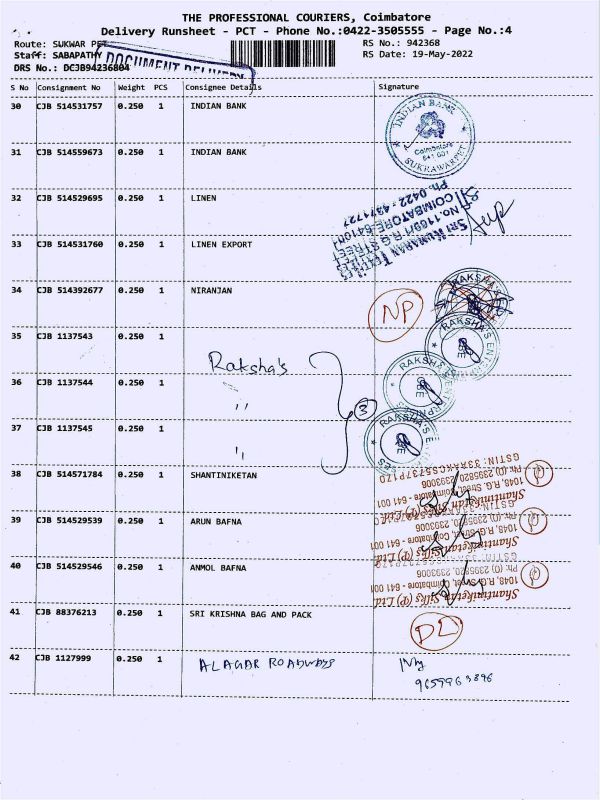 THE PROFESSIONAL COURIERS, Coimbatore
Delivery Runsheet - PCT - Phone No.:0422-3505555 - Page No.:4
Route: SUKWAR PET
RS No.: 942368
Staff: SABAPATHY
RS Date: 19-May-2022
DRS No.: DCJB94236804
DOCUMENT DELIVERY
S No Consignment No Weight PCS Consignee Details Signature
30 CJB 514531757 0.250 1 INDIAN BANK
INDIAN BANK
Coimbatore
641 001
SUKRAWARPET
31 CJB 514559673 0.250 1 INDIAN BANK
32 CJB 514529695 0.250 1 LINEN
SRI KUMARAN TEXTILES
No.116, R.G. STREET
COIMBATORE-641001
Ph. 0422 - 4371727
33 CJB 514531760 0.250 1 LINEN EXPORT
34 CJB 514392677 0.250 1 NIRANJAN
NP
RAKSHA'S
35 CJB 1137543 0.250 1 Raksha's
RAKSHA'S ENTERPRISES
CBE
36 CJB 1137544 0.250 1 〃
3
CBE
37 CJB 1137545 0.250 1 〃
RAKSHA'S ENTERPRISES
CBE
38 CJB 514571784 0.250 1 SHANTINIKETAN
Shantiniketan Silks (P) Ltd
1048, R.G. Street, Coimbatore - 641 001
Ph: (O) 2395820, 2393006
39 CJB 514529539 0.250 1 ARUN BAFNA
Shantiniketan Silks (P) Ltd
1048, R.G. Street, Coimbatore - 641 001
Ph: (O) 2395820, 2393006
40 CJB 514529546 0.250 1 ANMOL BAFNA
Shantiniketan Silks (P) Ltd
1048, R.G. Street, Coimbatore - 641 001
Ph: (O) 2395820, 2393006
41 CJB 88376213 0.250 1 SRI KRISHNA BAG AND PACK
DL
42 CJB 1127999 0.250 1 ALAGAR ROADWAYS
9659963896